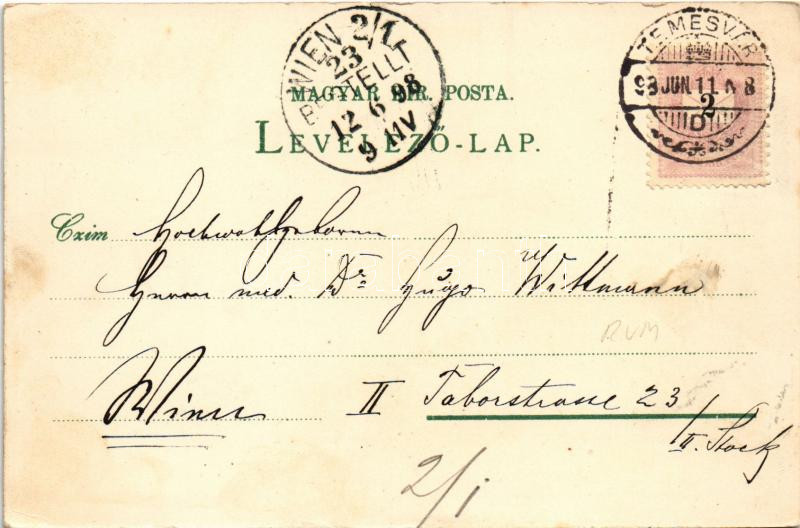 WIEN 2/1
23
BESTELLT
12 6 98
9 11V
TEMESVÁR
98 JUN. 11 N 8
2
D
MAGYAR KIR. POSTA.
LEVELEZŐ-LAP.
Czim Hochwohlgeboren
Herrn med. Dr. Hugo Wittmann
RVM
Wien II Taborstrasse 23
/ II. Stock
2/i